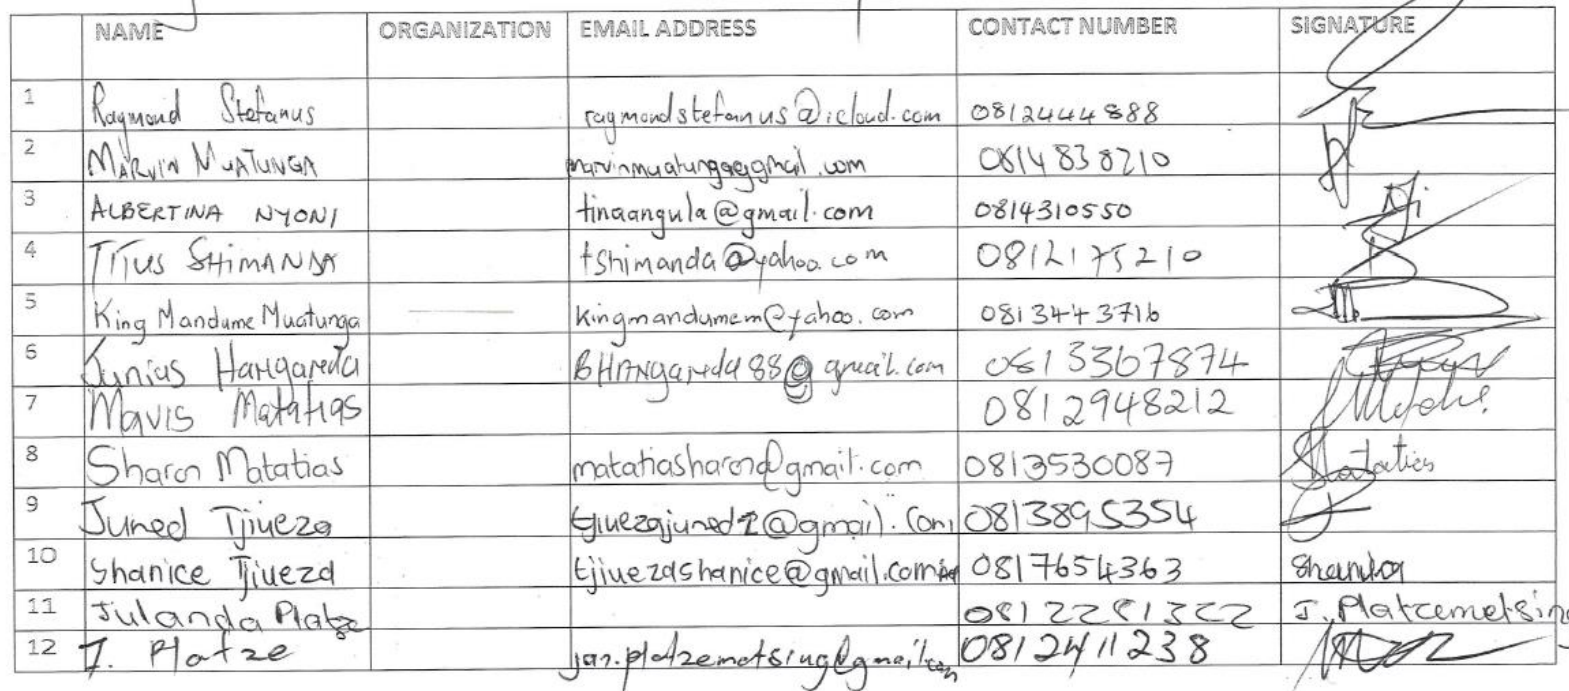 NAME ORGANIZATION EMAIL ADDRESS CONTACT NUMBER SIGNATURE
1 Raymond Stefanus raymondstefanus@icloud.com 0812444888
2 MARVIN MUATUNGA marvinmuatunga@gmail.com 0814838210
3 ALBERTINA NYONI tinaangula@gmail.com 0814310550
4 TITUS SHIMANDA tshimanda@yahoo.com 0812175210
5 King Mandume Muatunga kingmandumem@yahoo.com 0813443716
6 Junias Hangareda BHANgareda88@gmail.com 0813367874
7 Mavis Matatias 0812948212
8 Sharon Matatias matatiasharon@gmail.com 0813530087
9 Juned Tjiueza tjiuezajuned2@gmail.com 0813895354
10 Shanice Tjiueza tjiuezashanice@gmail.com 0817654363
11 Julanda Platze 0812281322 J. Platcemetsing
12 J. Platze jan.platzemetsing@gmail.com 0812411238